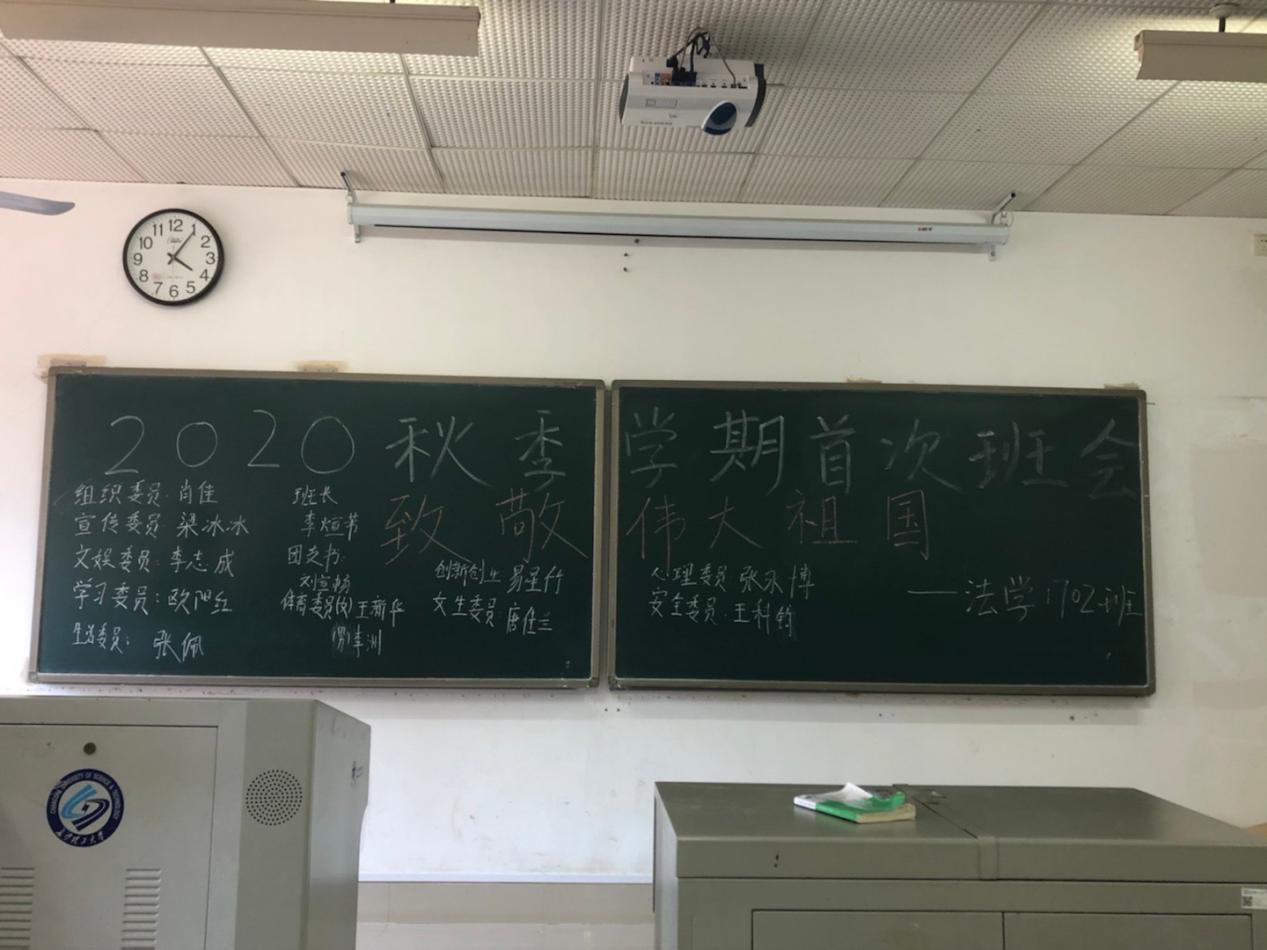 2020秋季学期首次班会
致敬伟大祖国
——法学1702班
组织委员:肖佳
宣传委员 梁冰冰
文娱委员:李志成
学习委员:欧阳红
生活委员: 张佩
班长
李烜芳
团支书:
刘宣畅
体育委员(女)王新华
(男)李洲
创新创业 易星竹
文生委员 唐仕兰
心理委员 张永博
安全委员:王科钧
12
1
2
3
4
5
6
7
8
9
10
11
CHANGSHA UNIVERSITY OF SCIENCE & TECHNOLOGY
长沙理工大学